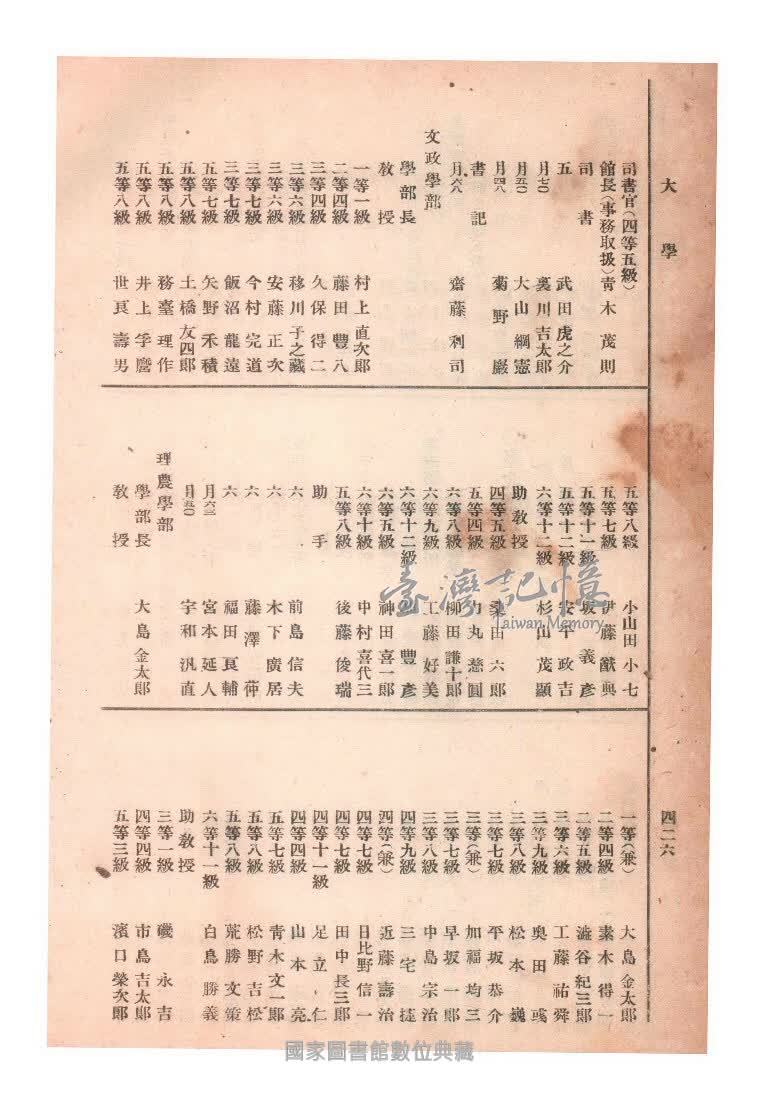 大學
四二六
司書官(四等五級)
館長(事務取扱)靑木茂則
司書
五 武田虎之介
月七〇 裏川吉太郎
月五〇 大山綱憲
月四八 菊野巖
書記
月六八 齋藤利司
文政學部
學部長
敎授
一等一級 村上直次郎
二等四級 藤田豐八
三等四級 久保得二
三等六級 移川子之藏
三等六級 安藤正次
三等七級 今村完道
三等七級 飯沼龍遠
五等七級 矢野禾積
五等八級 土橋友四郎
五等八級 務臺理作
五等八級 井上孚麿
五等八級 世良壽男
五等八級 小山田小七
五等七級 伊藤猷典
五等十一級 坂義彥
五等十二級 安平政吉
六等十二級 杉山茂顯
助敎授
四等五級 桑田六郎
五等四級 力丸慈圓
六等八級 柳田謙十郎
六等九級 工藤好美
六等十二級 豐彥
六等五級 神田喜一郎
六等十級 中村喜代三
五等八級 後藤俊瑞
助手
六 前島信夫
六 木下廣居
六 藤澤
六 福田良輔
月六三 宮本延人
月五〇 宇和汎直
理農學部
學部長 大島金太郎
敎授
一等(兼) 大島金太郎
二等四級 素木得一
二等五級 澁谷紀三郎
三等六級 工藤祐舜
三等九級 奧田彧
三等八級 松本巍
三等七級 平坂恭介
三等(兼) 加福均三
三等七級 早坂一郎
三等八級 中島宗治
四等九級 三宅捷
四等(兼) 近藤壽治
四等七級 日比野信一
四等七級 田中長三郎
四等十一級 足立仁
四等四級 山本亮
五等七級 靑木文一郎
五等八級 松野吉松
五等八級 荒勝文策
六等十一級 白鳥勝義
助敎授
三等一級 磯永吉
四等四級 市島吉太郎
五等三級 濱口榮次郎
臺灣記憶
Taiwan Memory
國家圖書館數位典藏